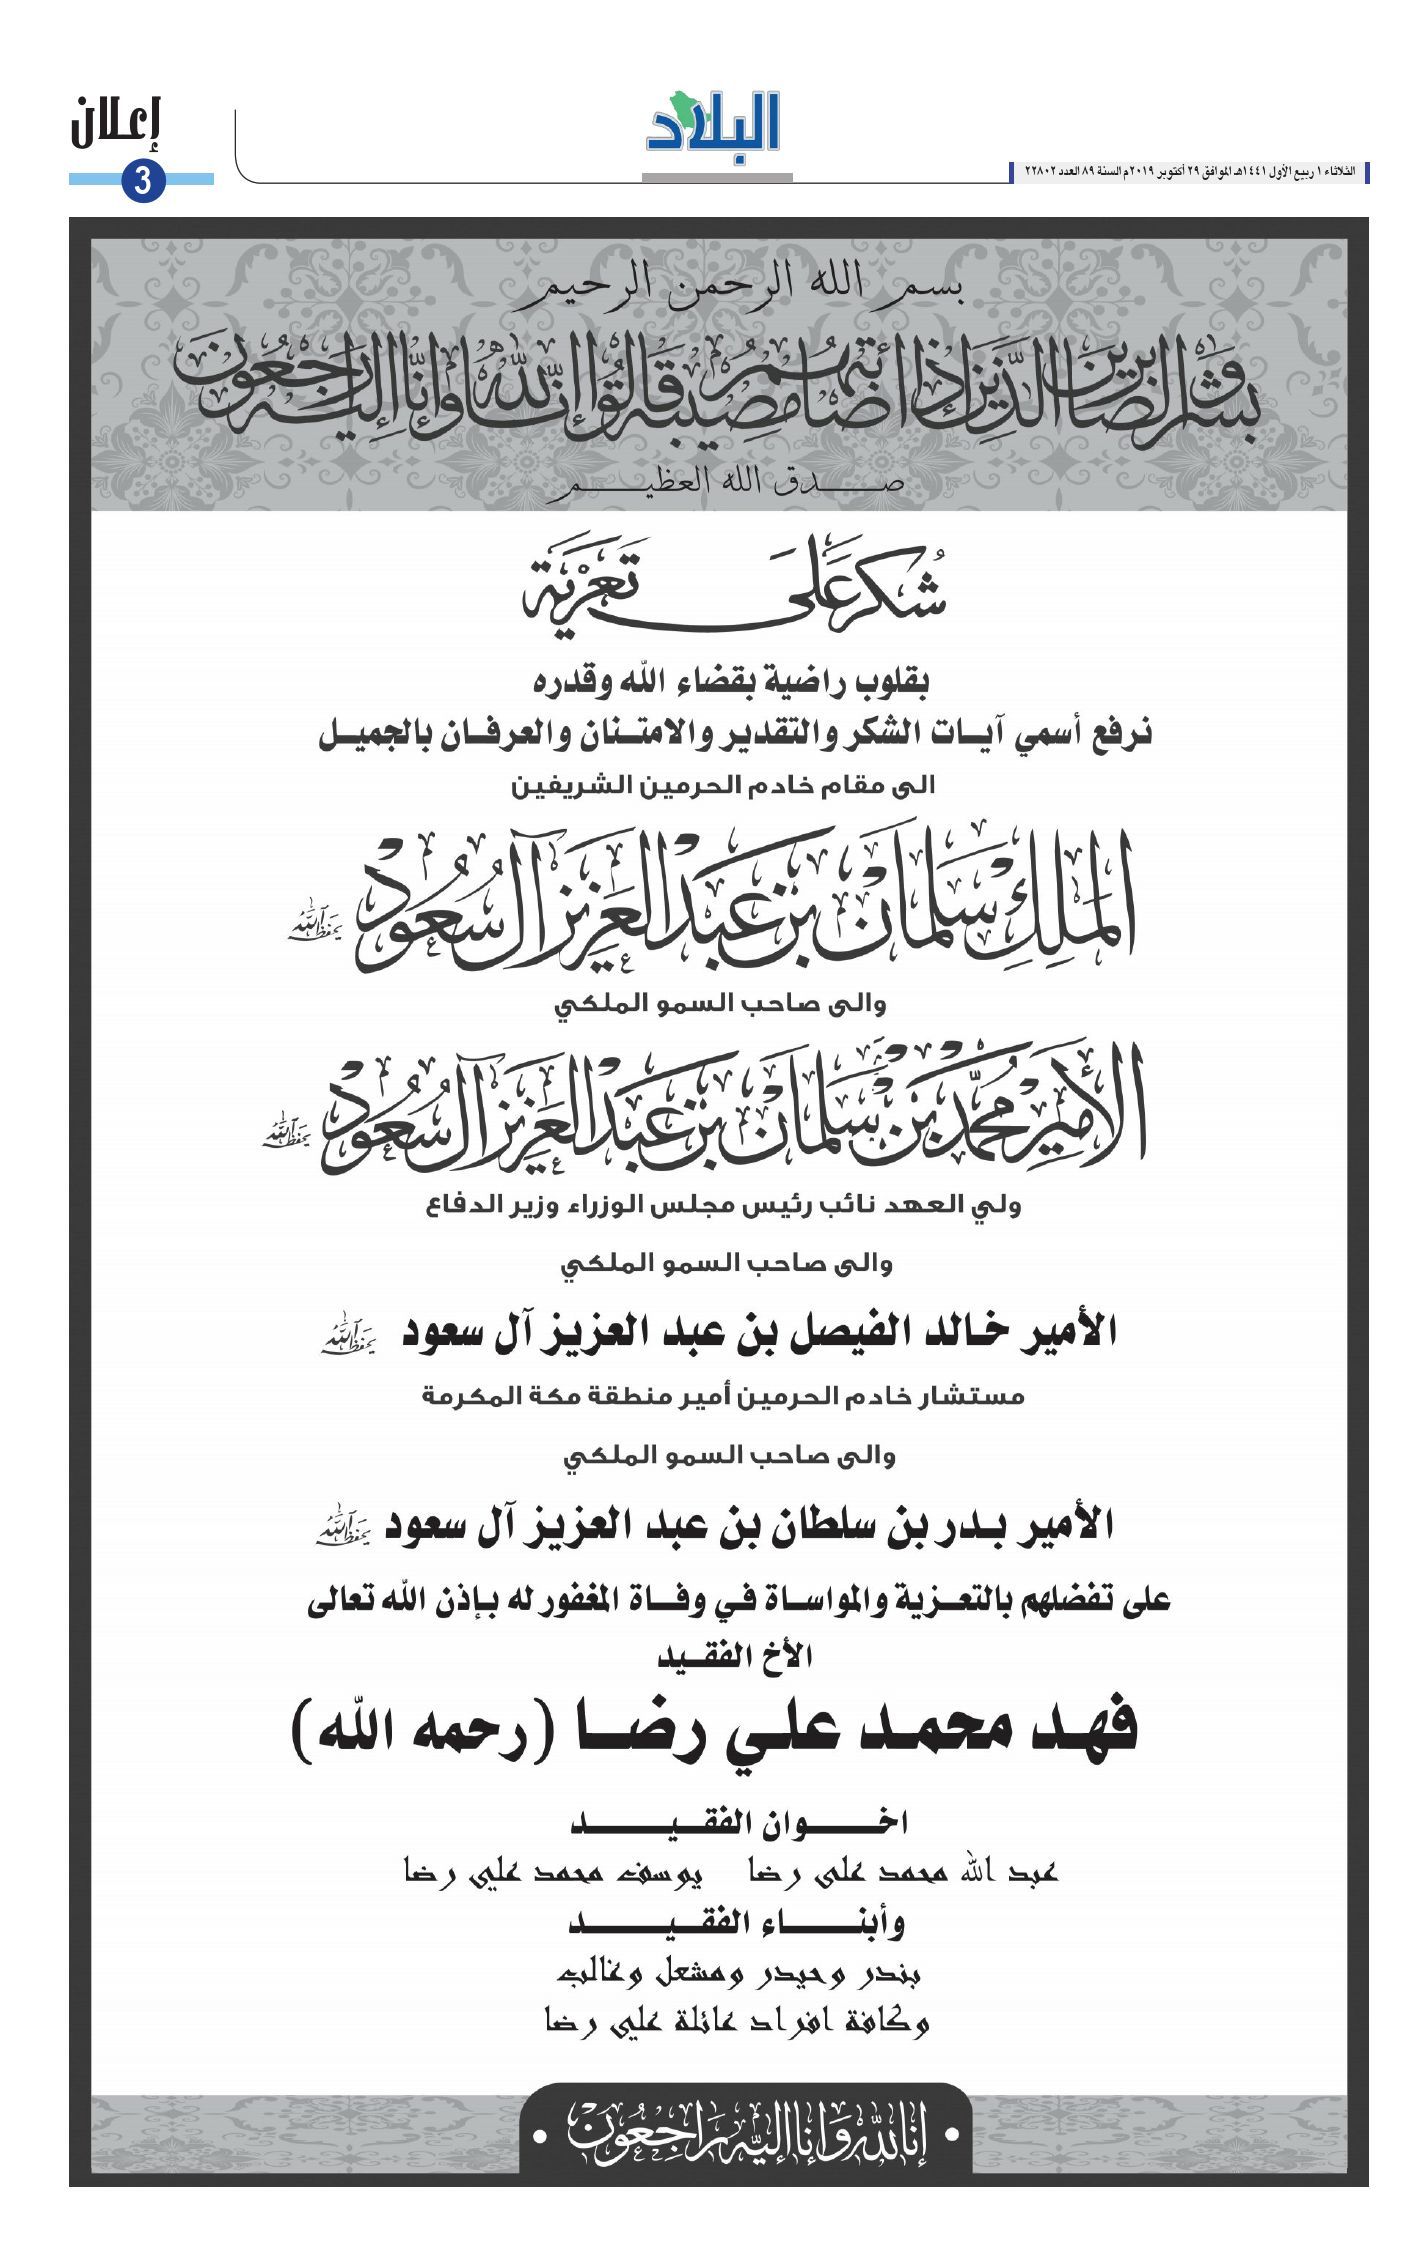 إعلان
3
البلاد
الثلاثاء ١ ربيع الأول ١٤٤١هـ الموافق ٢٩ أكتوبر ٢٠١٩م السنة ٨٩ العدد ٢٢٨٠٢
بسم الله الرحمن الرحيم
وبشر الصابرين الذين إذا أصابتهم مصيبة قالوا إنا لله وإنا إليه راجعون
صدق الله العظيم
شكر على تعزية
بقلوب راضية بقضاء الله وقدره
نرفع أسمي آيات الشكر والتقدير والامتنان والعرفان بالجميل
الى مقام خادم الحرمين الشريفين
الملك سلمان بن عبدالعزيز آل سعود يحفظه الله
والى صاحب السمو الملكي
الأمير محمد بن سلمان بن عبدالعزيز آل سعود يحفظه الله
ولي العهد نائب رئيس مجلس الوزراء وزير الدفاع
والى صاحب السمو الملكي
الأمير خالد الفيصل بن عبد العزيز آل سعود يحفظه الله
مستشار خادم الحرمين أمير منطقة مكة المكرمة
والى صاحب السمو الملكي
الأمير بدر بن سلطان بن عبد العزيز آل سعود يحفظه الله
على تفضلهم بالتعزية والمواساة في وفاة المغفور له بإذن الله تعالى
الأخ الفقيد
فهد محمد علي رضا (رحمه الله)
اخوان الفقيد
عبد الله محمد على رضا يوسف محمد علي رضا
وأبناء الفقيد
بندر وحيدر ومشعل وغالب
وكافة افراد عائلة علي رضا
إنا لله وإنا إليه راجعون